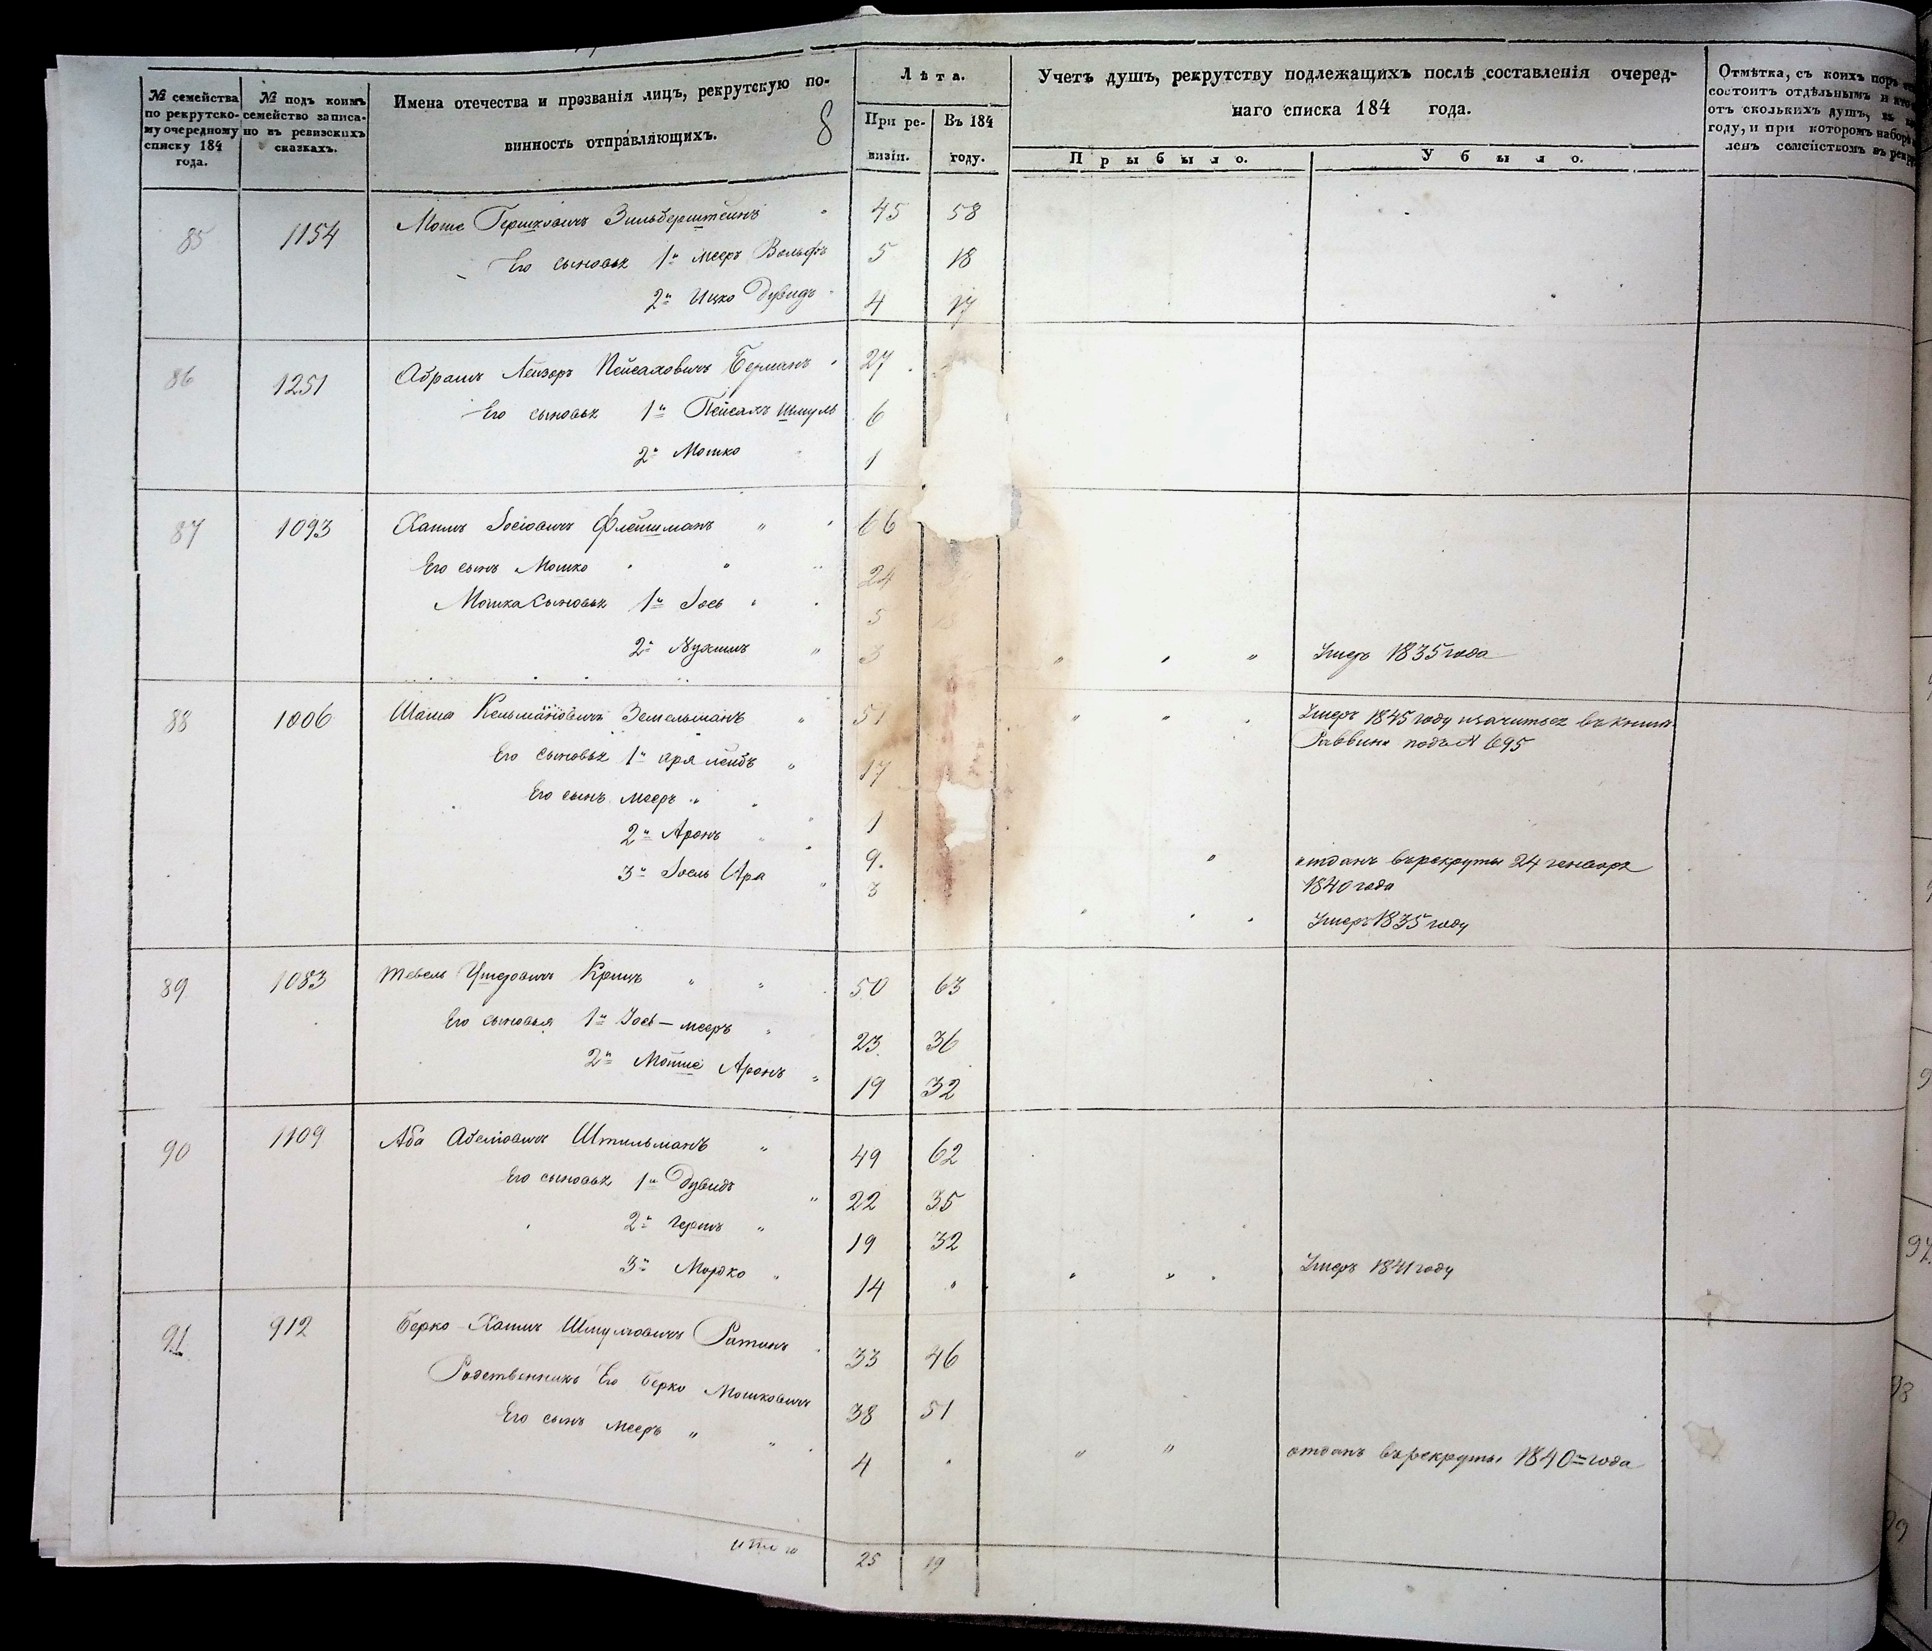 № семейства по рекрутскому очередному списку 184 года.
№ подъ коимъ семейство записано въ ревизскихъ сказкахъ.
Имена отечества и прозванія лицъ, рекрутскую по-
винность отправляющихъ.
8
Лѣта.
При ревизіи.
Въ 184 году.
Учетъ душъ, рекрутству подлежащихъ послѣ составленія очеред-
наго списка 184 года.
Прыбыло.
Убыло.
Отмѣтка, съ коихъ поръ
состоитъ отдѣльнымъ и
отъ сколькихъ душъ, въ
году, и при которомъ наборѣ
ленъ семействомъ въ
85 1154 Моше Гершковичъ Зильберштейнъ 45 58
Его сыновья 1й Меер Вольфъ 5 18
2й Ицко Дувидъ 4 17
86 1251 Абрамъ Лейзоръ Пейсаховичъ Берманъ 27
Его сыновья 1й Пейсахъ Шмуль 6
2й Мошко 1
87 1093 Хаимъ Іосіовичъ Флейшманъ 66
Его сынъ Мошко 24
Мошка сыновья 1й Іось 5
2й Нухимъ 3 Умеръ 1835 года
88 1006 Шама Кельмановичъ Земельманъ 51 Умеръ 1845 году значится въ книги
Раввина подъ № 695
Его сыновья 1й Аря Лейбъ 17
Его сынъ Мееръ 1
2й Аронъ 9. отданъ в рекруты 24 генваря
1840 года
3й Іоель Ара 3 Умеръ 1835 году
89 1083 Тевель Ушеровичъ Крицъ 50 63
Его сыновья 1й Іось-Мееръ 23 36
2й Мошие Аронъ 19 32
90 1109 Аба Абелiовичъ Штильманъ 49 62
Его сыновья 1й Дувидъ 22 35
2й Гершъ 19 32
3й Мордко 14 Умеръ 1841 году
91 912 Берко Хаимъ Шмулiовичъ 33 46
Родственникъ Его Берко Мошковичъ 38 51
Его сынъ Мееръ 4 отданъ в рекруты 1840 года
Итого 25 19